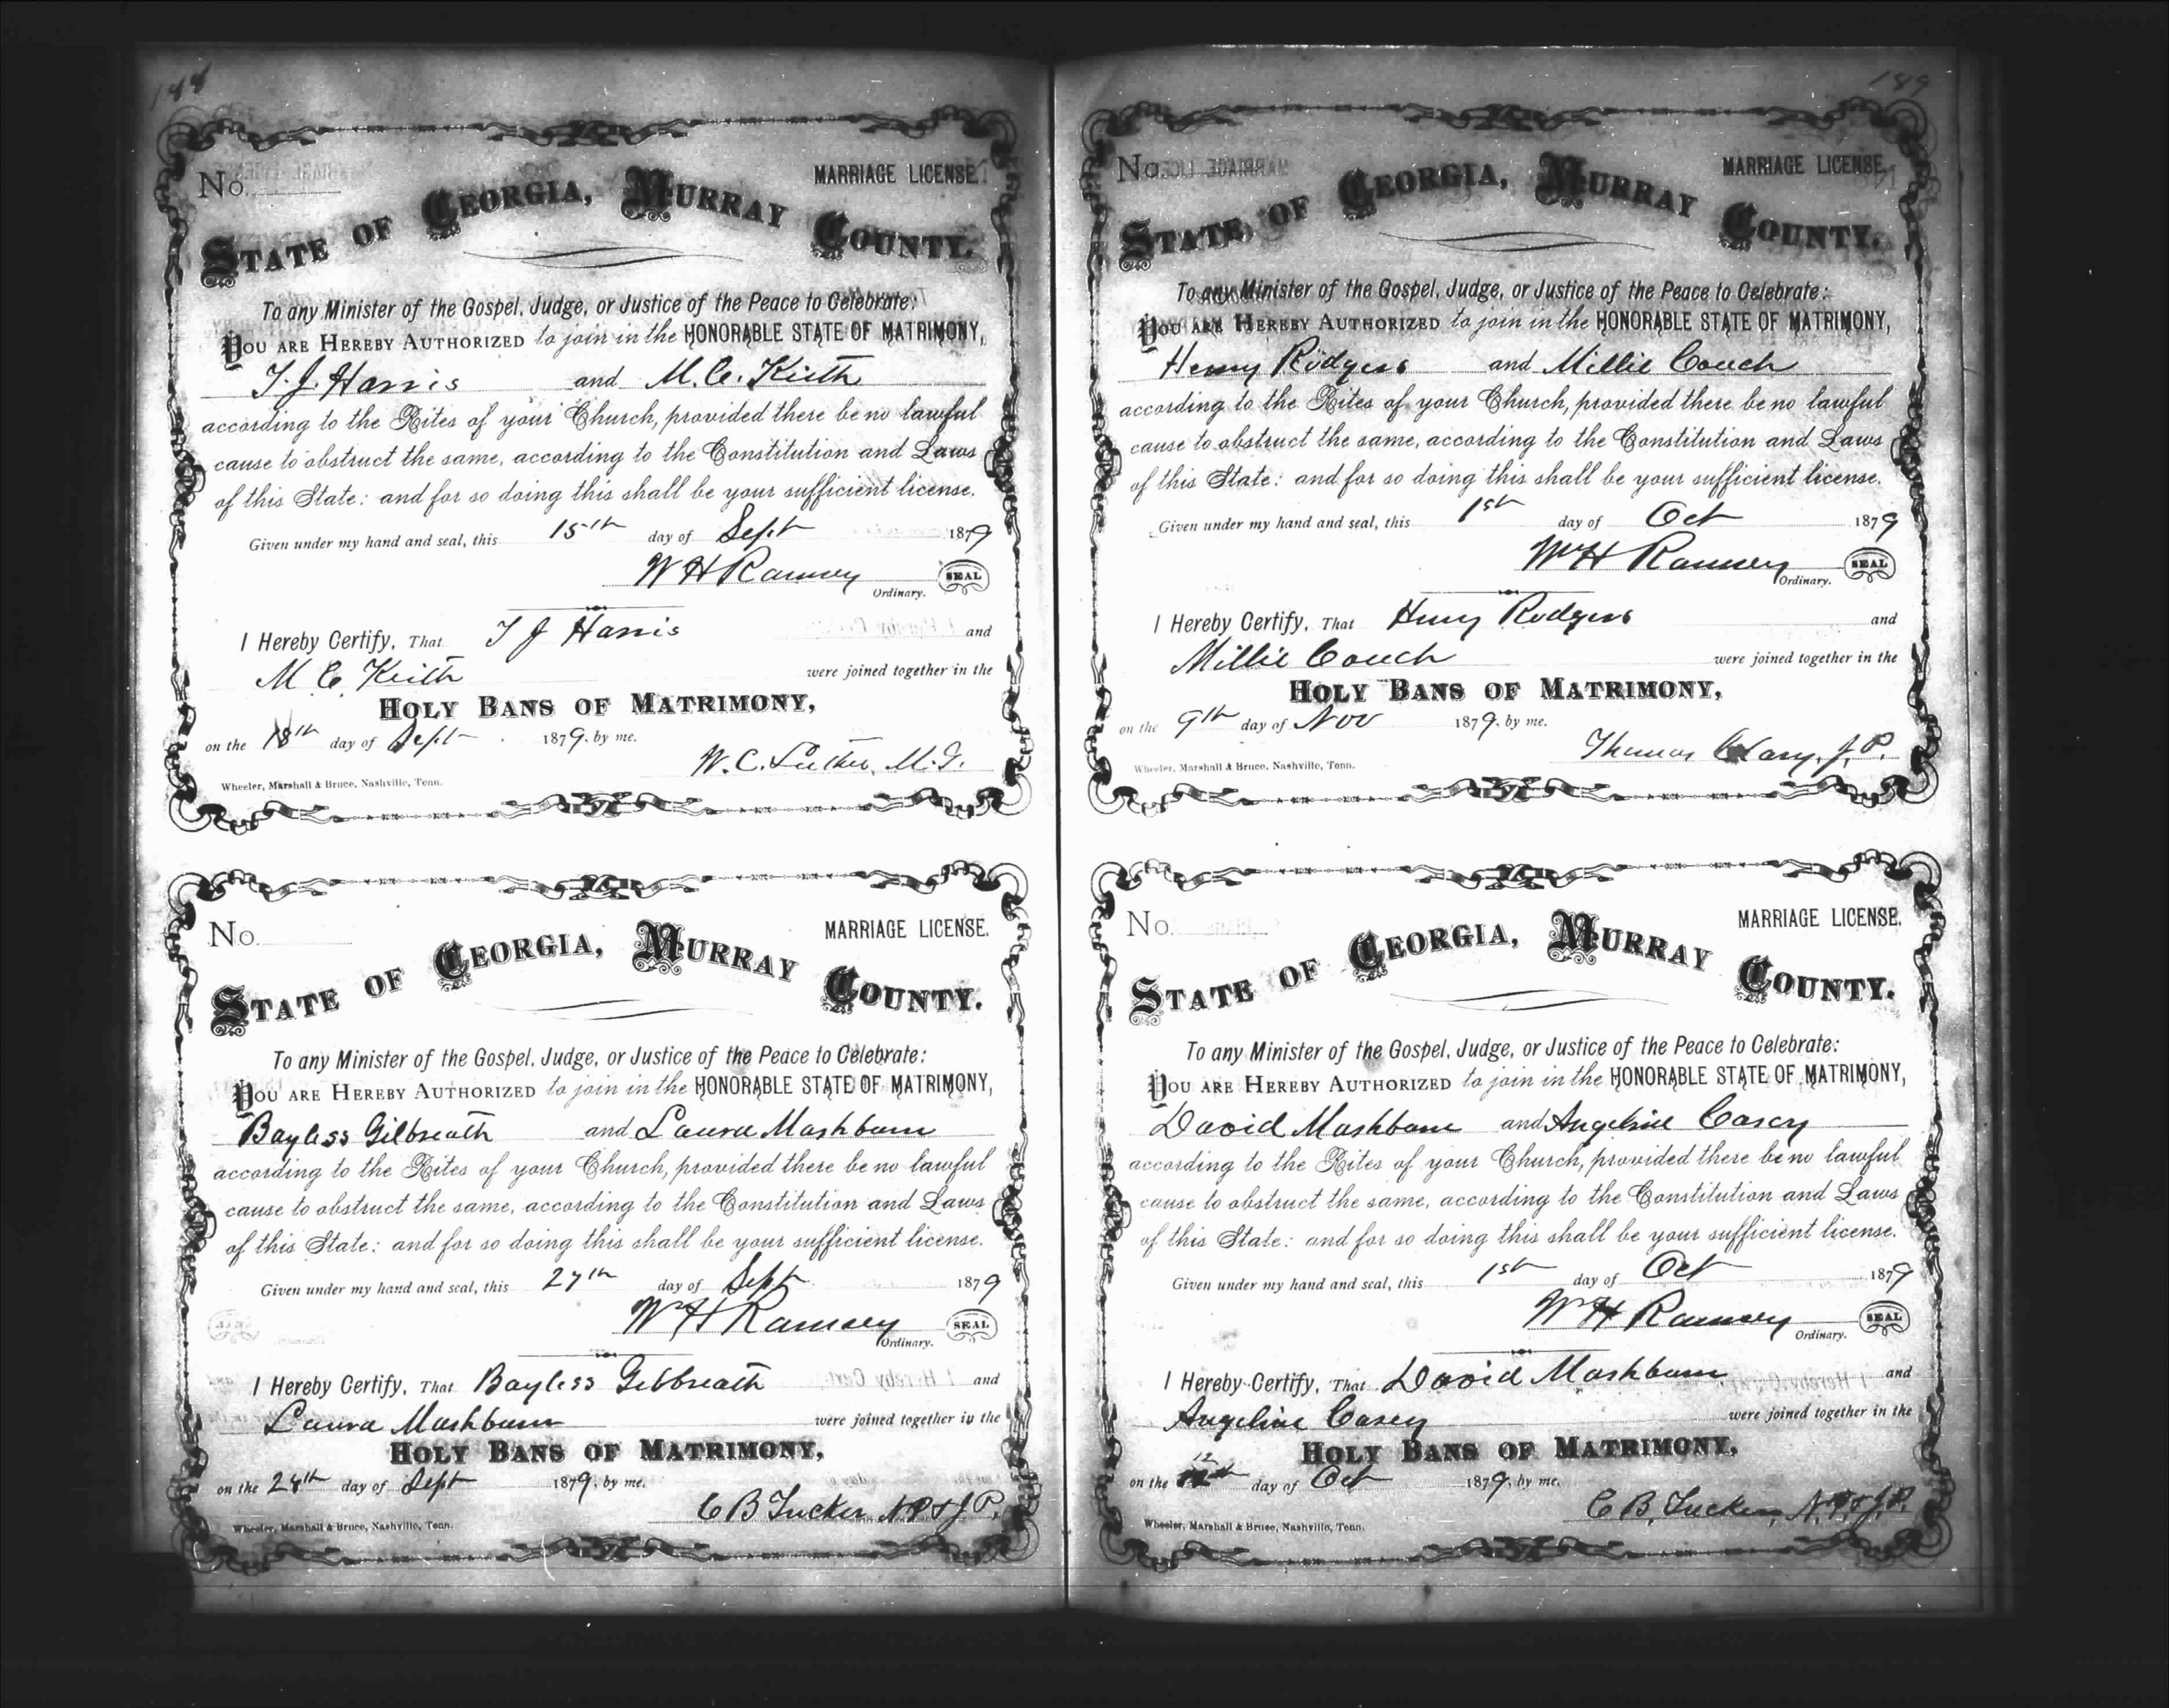 No. MARRIAGE LICENSE.
STATE OF GEORGIA, MURRAY COUNTY.
To any Minister of the Gospel, Judge, or Justice of the Peace to Celebrate:
YOU ARE HEREBY AUTHORIZED to join in the HONORABLE STATE OF MATRIMONY,
T. J. Harris and M. C. Keith
according to the Rites of your Church, provided there be no lawful
cause to obstruct the same, according to the Constitution and Laws
of this State: and for so doing this shall be your sufficient license.
Given under my hand and seal, this 15th day of Sept 1879
W H Ramsey SEAL
Ordinary.
I Hereby Certify, That T J Harris and
M C. Keith were joined together in the
HOLY BANS OF MATRIMONY,
on the 18th day of Sept 1879, by me.
W. C. Luther, M. G.
Wheeler, Marshall & Bruce, Nashville, Tenn.
No. MARRIAGE LICENSE.
STATE OF GEORGIA, MURRAY COUNTY.
To any Minister of the Gospel, Judge, or Justice of the Peace to Celebrate:
YOU ARE HEREBY AUTHORIZED to join in the HONORABLE STATE OF MATRIMONY,
Bayless Gilbreath and Laura Mashburn
according to the Rites of your Church, provided there be no lawful
cause to obstruct the same, according to the Constitution and Laws
of this State: and for so doing this shall be your sufficient license.
Given under my hand and seal, this 27th day of Sept 1879
Wm H Ramsey SEAL
Ordinary.
I Hereby Certify, That Bayless Gilbreath and
Laura Mashburn were joined together in the
HOLY BANS OF MATRIMONY,
on the 28th day of Sept 1879, by me.
C B Tucker N P & J P.
Wheeler, Marshall & Bruce, Nashville, Tenn.
189
No. MARRIAGE LICENSE.
STATE OF GEORGIA, MURRAY COUNTY.
To any Minister of the Gospel, Judge, or Justice of the Peace to Celebrate:
YOU ARE HEREBY AUTHORIZED to join in the HONORABLE STATE OF MATRIMONY,
Henry Rodgers and Millie Couch
according to the Rites of your Church, provided there be no lawful
cause to obstruct the same, according to the Constitution and Laws
of this State: and for so doing this shall be your sufficient license.
Given under my hand and seal, this 1st day of Oct 1879
Wm H Ramsey SEAL
Ordinary.
I Hereby Certify, That Henry Rodgers and
Millie Couch were joined together in the
HOLY BANS OF MATRIMONY,
on the 9th day of Nov 1879, by me.
Thomas J. P.
Wheeler, Marshall & Bruce, Nashville, Tenn.
No. MARRIAGE LICENSE.
STATE OF GEORGIA, MURRAY COUNTY.
To any Minister of the Gospel, Judge, or Justice of the Peace to Celebrate:
YOU ARE HEREBY AUTHORIZED to join in the HONORABLE STATE OF MATRIMONY,
David Mashburn and Angeline Casey
according to the Rites of your Church, provided there be no lawful
cause to obstruct the same, according to the Constitution and Laws
of this State: and for so doing this shall be your sufficient license.
Given under my hand and seal, this 1st day of Oct 1879
Wm H Ramsey SEAL
Ordinary.
I Hereby Certify, That David Mashburn and
Angeline Casey were joined together in the
HOLY BANS OF MATRIMONY,
on the 12 day of Oct 1879, by me.
C B, Tucker, N. P. & J. P.
Wheeler, Marshall & Bruce, Nashville, Tenn.